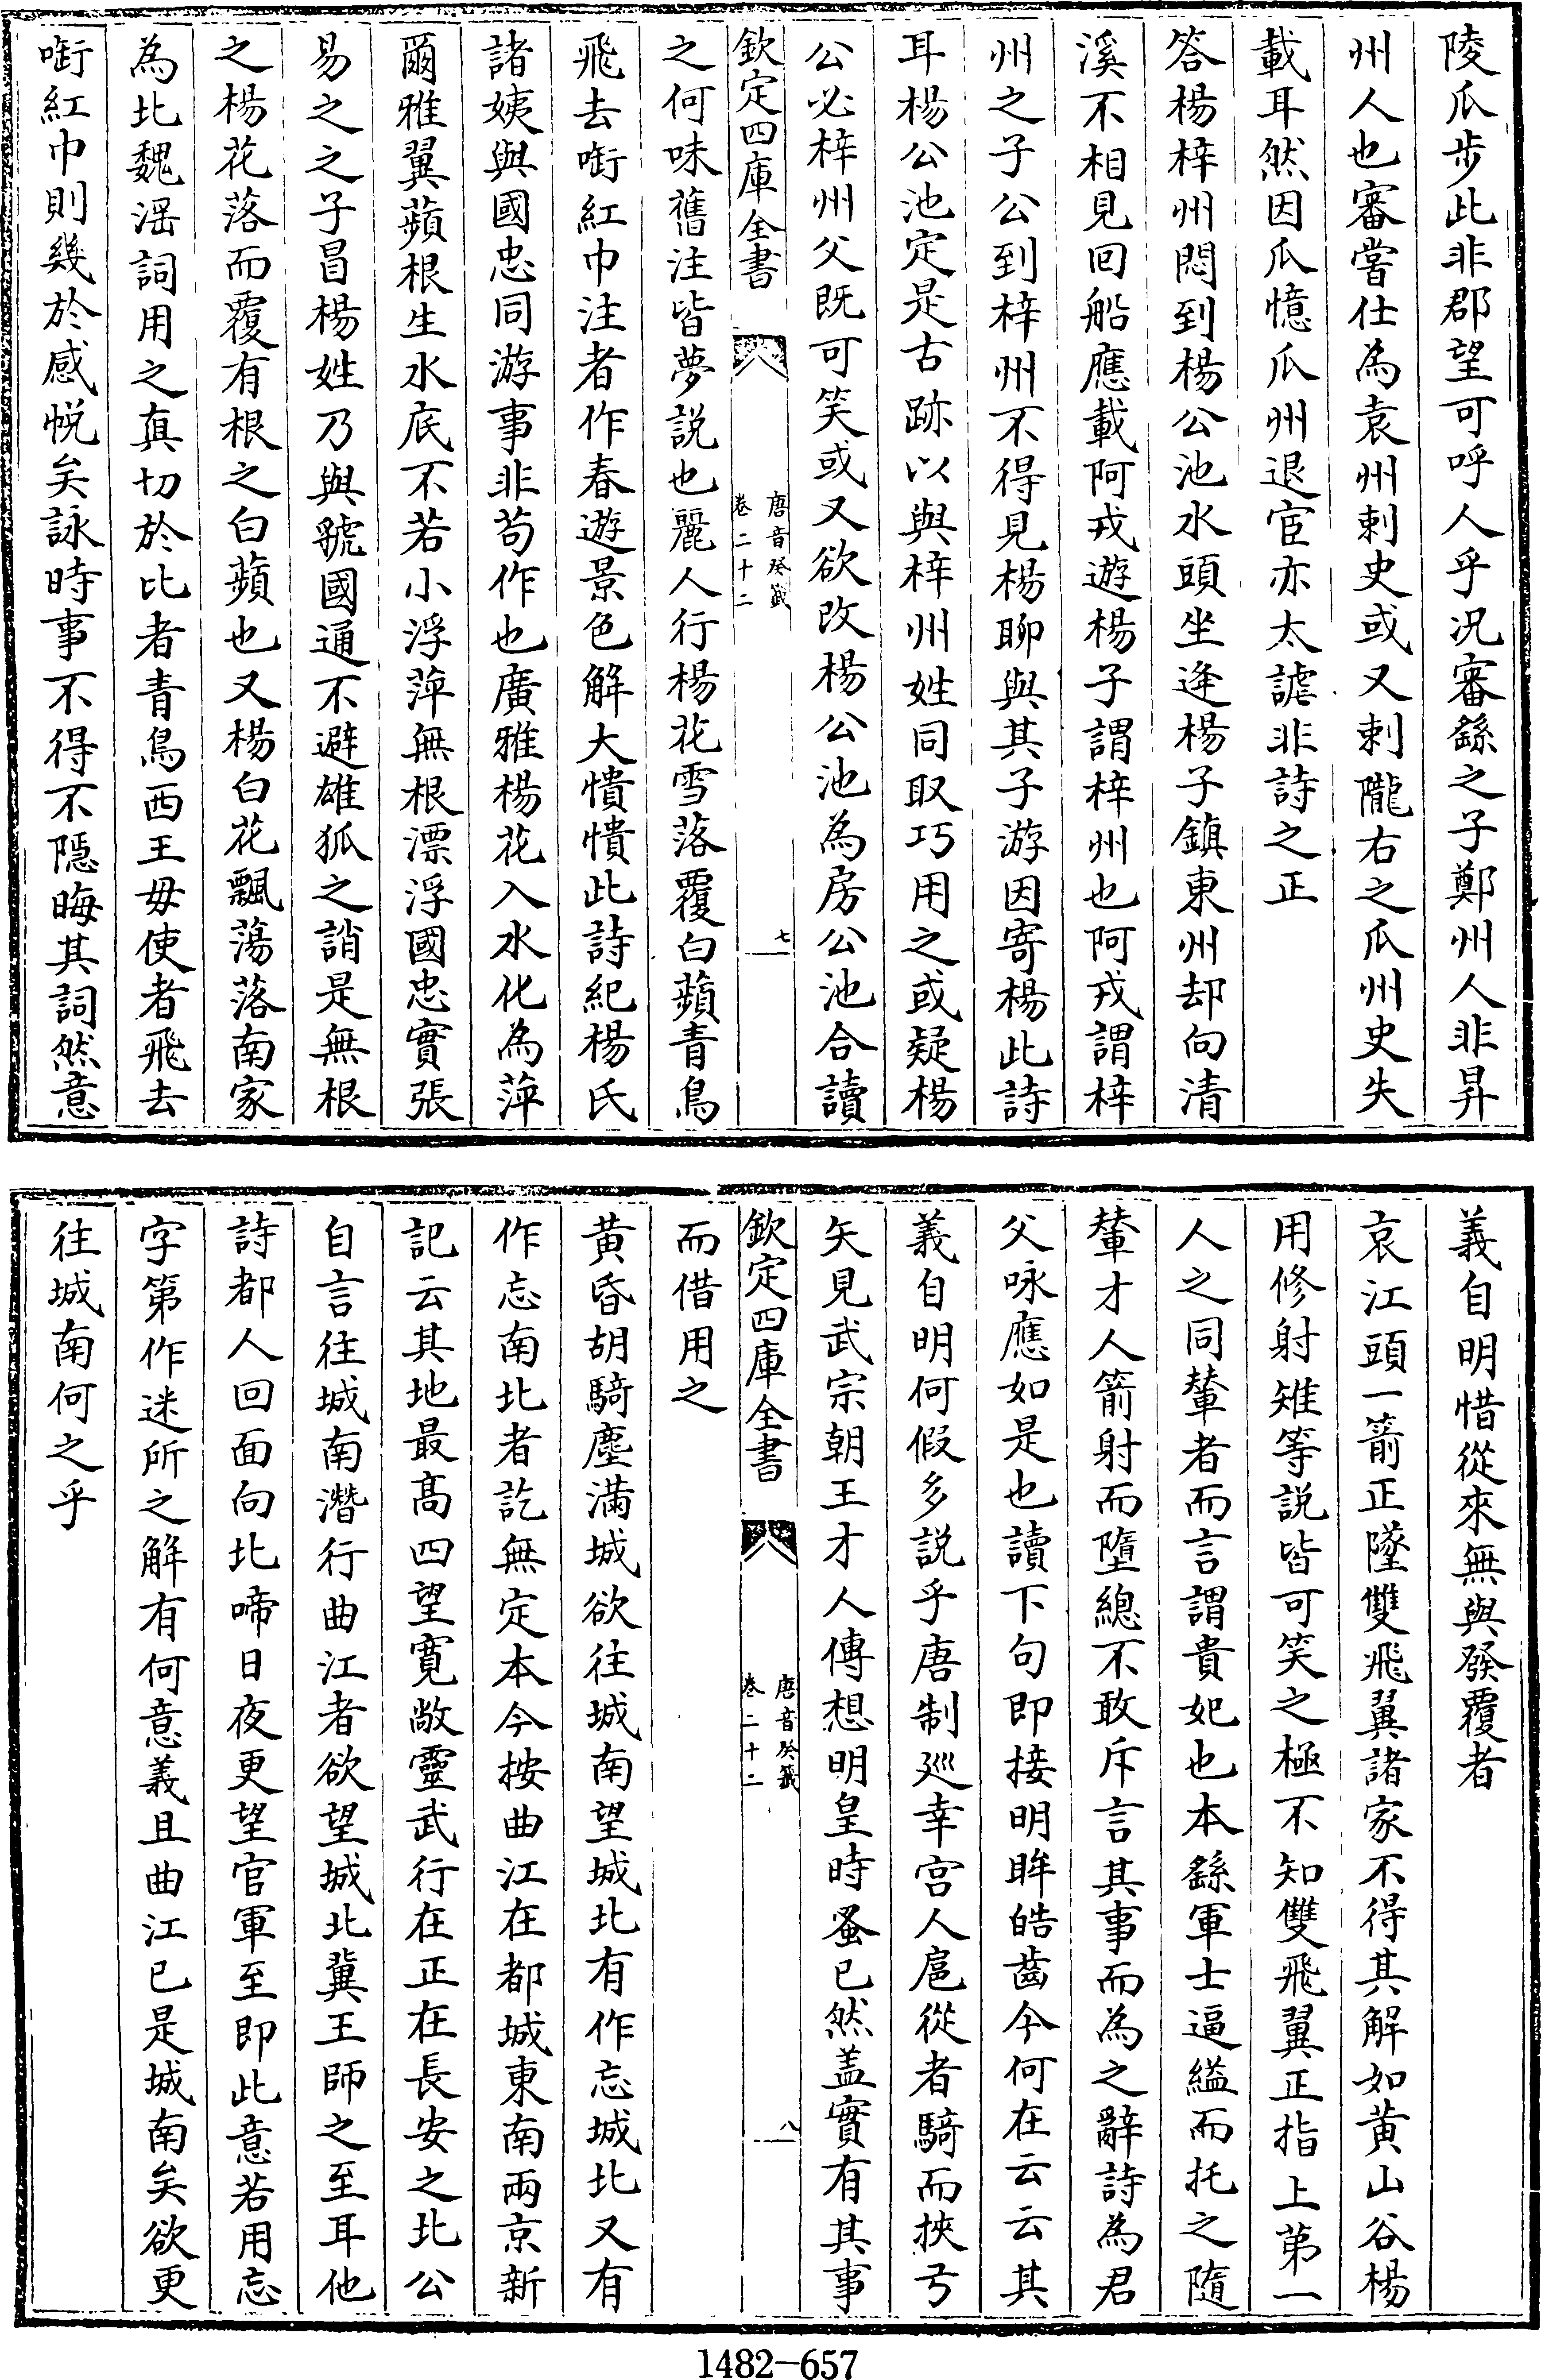 陵瓜步此非郡望可呼人乎况審繇之子鄭州人非昇
州人也審嘗仕為袁州刺史或又刺隴右之瓜州史失
載耳然因瓜憶瓜州退宦亦太謔非詩之正
答楊梓州悶到楊公池水頭坐逢楊子鎮東州却向清
溪不相見回船應載阿戎遊楊子謂梓州也阿戎謂梓
州之子公到梓州不得見楊聊與其子游因寄楊此詩
耳楊公池定是古跡以與梓州姓同取巧用之或疑楊
公必梓州父既可笑或又欲改楊公池為房公池合讀
欽定四庫全書
唐音癸籤
卷二十二
七
之何味舊注皆夢説也麗人行楊花雪落覆白蘋青鳥
飛去銜紅巾注者作春遊景色解大憒憒此詩紀楊氏
諸姨與國忠同游事非苟作也廣雅楊花入水化為萍
爾雅翼蘋根生水底不若小浮萍無根漂浮國忠實張
易之之子冒楊姓乃與虢國通不避雄狐之誚是無根
之楊花落而覆有根之白蘋也又楊白花飄蕩落南家
為北魏滛詞用之真切於比者青鳥西王毋使者飛去
銜紅巾則幾於感帨矣詠時事不得不隠晦其詞然意
義自明惜從來無與發覆者
哀江頭一箭正墜雙飛翼諸家不得其解如黄山谷楊
用修射雉等説皆可笑之極不知雙飛翼正指上第一
人之同輦者而言謂貴妃也本繇軍士逼縊而托之隨
輦才人箭射而墮總不敢斥言其事而為之辭詩為君
父咏應如是也讀下句即接明眸皓齒今何在云云其
義自明何假多説乎唐制廵幸宫人扈從者騎而挾弓
矢見武宗朝王才人傳想明皇時蚤已然盖實有其事
欽定四庫全書
唐音癸籤
卷二十二
八
而借用之
黄昏胡騎塵滿城欲往城南望城北有作忘城北又有
作忘南北者訖無定本今按曲江在都城東南兩京新
記云其地最髙四望寛敞靈武行在正在長安之北公
自言往城南潛行曲江者欲望城北冀王師之至耳他
詩都人回面向北啼日夜更望官軍至即此意若用忘
字第作迷所之解有何意義且曲江已是城南矣欲更
往城南何之乎
1482-657